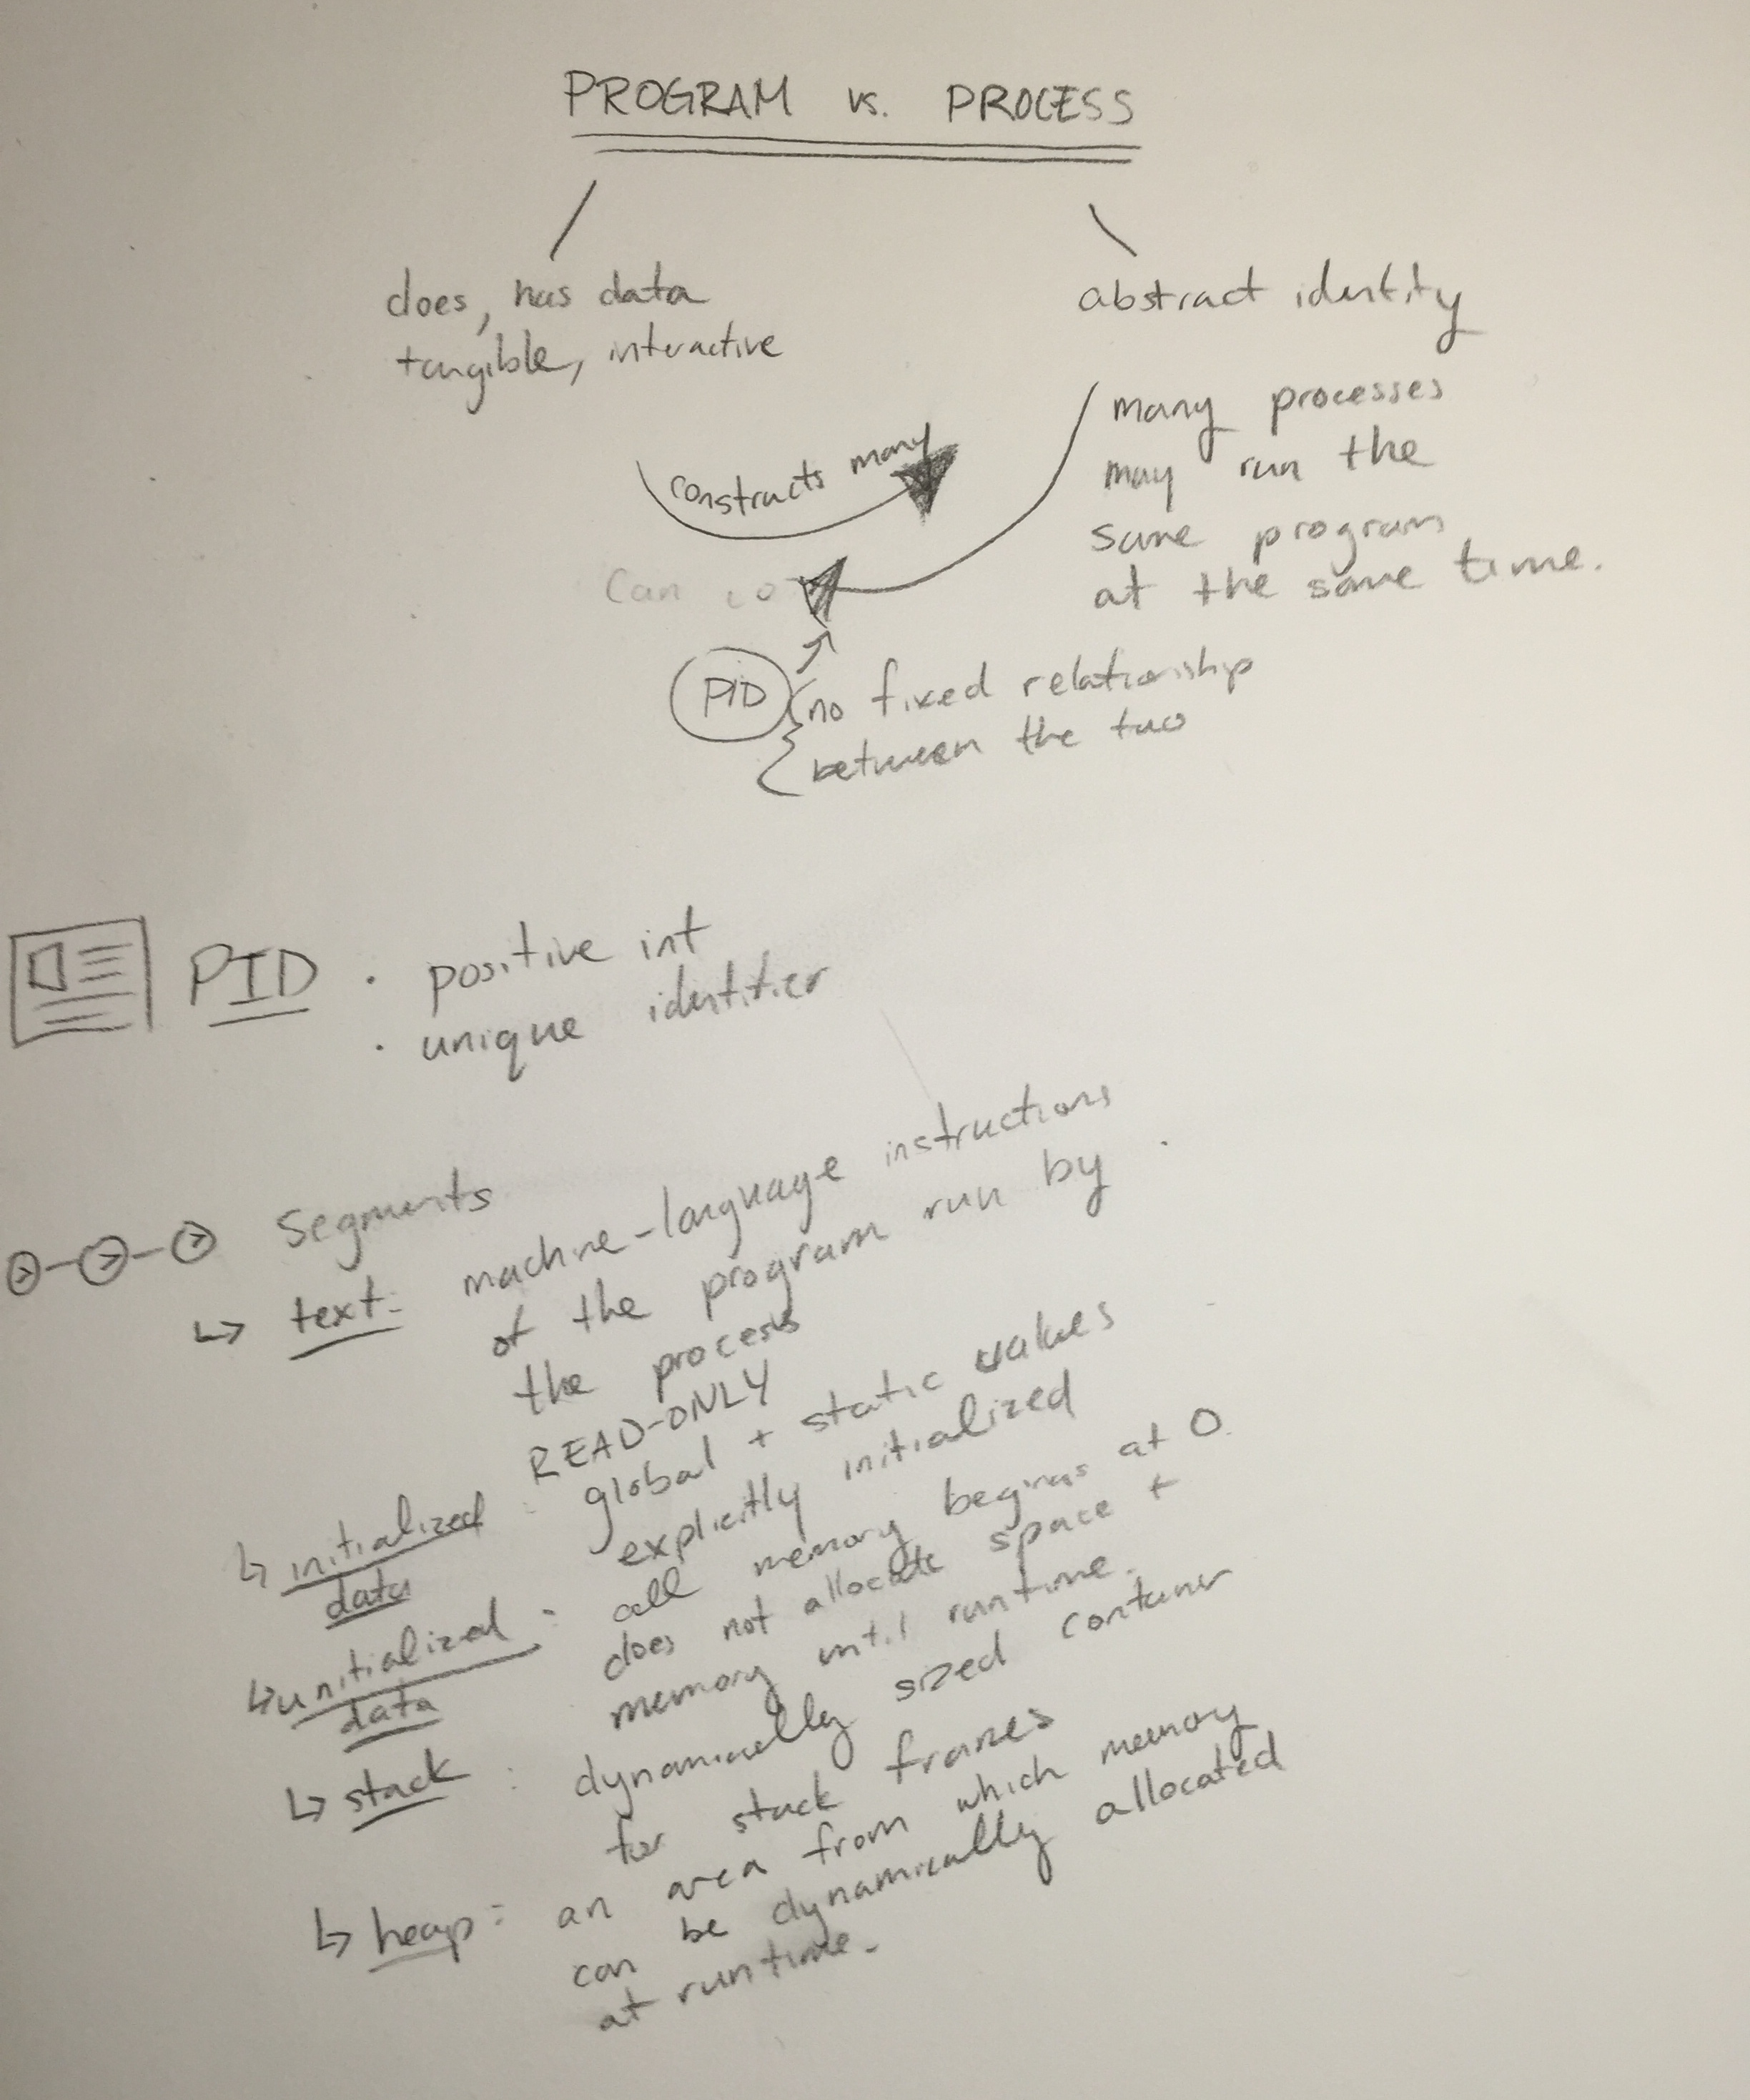 PROGRAM vs. PROCESS
does, has data
tangible, interactive
abstract identity
many processes
may run the
same program
at the same time.
constructs many
Can co
PID
no fixed relationship
between the two
PID · positive int
· unique identifier
Segments
↳ text: machine-language instructions
of the program run by
the process
READ-ONLY
↳ initialized data : global + static values
explicitly initialized
↳ unitialized data : all memory begins at 0.
does not allocate space +
memory until runtime.
↳ stack : dynamically sized container
for stack frames
↳ heap: an area from which memory
can be dynamically allocated
at runtime.